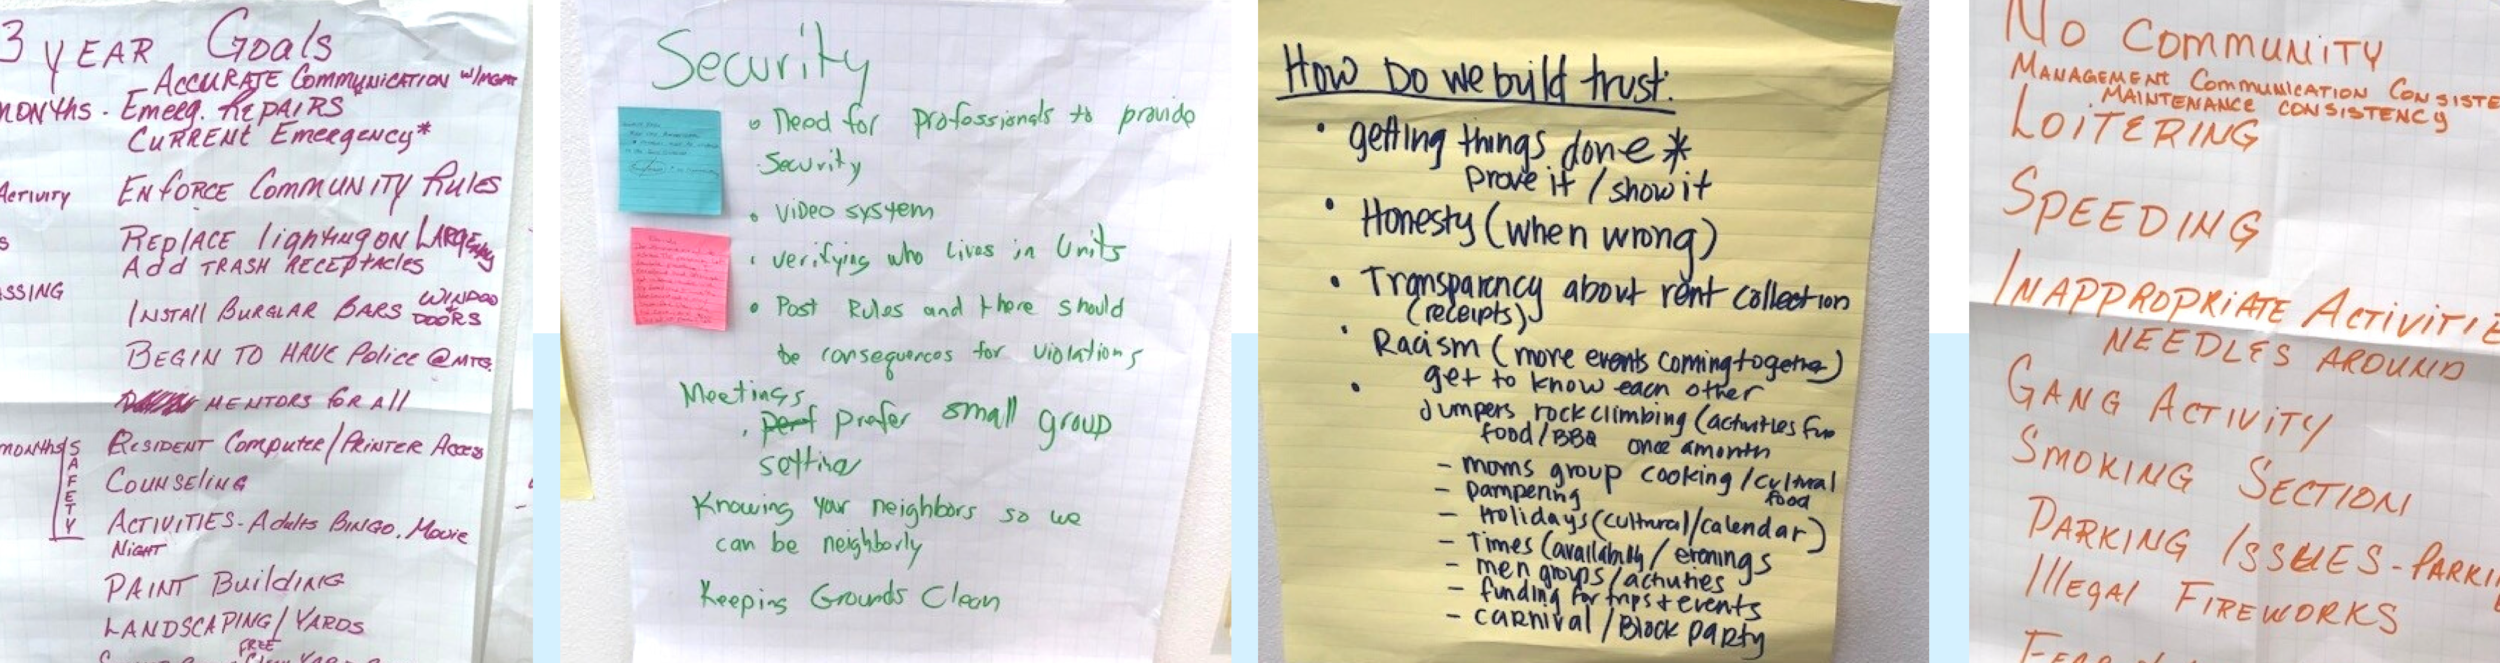 3 YEAR Goals
ACCURATE COMMUNICATION w/MGMT
MONTHS - Emerg. REPAIRS
CURRENT Emergency*
ACTIVITY ENFORCE COMMUNITY RULES
REPLACE lighting ON LARGE
Add TRASH RECEPTACLES
INSTALL BURGLAR BARS WINDOO
DOORS
BEGIN TO HAVE Police @MTG.
MENTORS FOR All
MONTHS SAFETY
RESIDENT Computer/PRINTER Access
COUNSELING
ACTIVITIES - Adults BINGO, Movie
NIGHT
PAINT Building
LANDSCAPING/YARDS
FREE
Security
Need for professionals to provide
Security
Video system
verifying who lives in Units
Post Rules and there should
be consequences for violations
Meetings
prefer small group
setting
Knowing your neighbors so we
can be neighborly
Keeping Grounds Clean
How Do we build trust:
• getting things done *
Prove it / show it
• Honesty (when wrong)
• Transparency about rent collection
(receipts)
• Racism (more events coming together)
• get to know each other
Jumpers rock climbing (activities fun
food/BBQ once a month
- moms group cooking / cultural
food
- pampering
- Holidays (cultural/calendar)
- Times (availability / evenings
- men groups/activities
- funding for trips + events
- carnival / Block party
NO COMMUNITY
MANAGEMENT COMMUNICATION CONSISTE
MAINTENANCE CONSISTENCY
LOITERING
SPEEDING
INAPPROPRIATE ACTIVITIE
NEEDLES AROUND
GANG ACTIVITY
SMOKING SECTION
PARKING ISSUES - PARKI
Illegal FIREWORKS